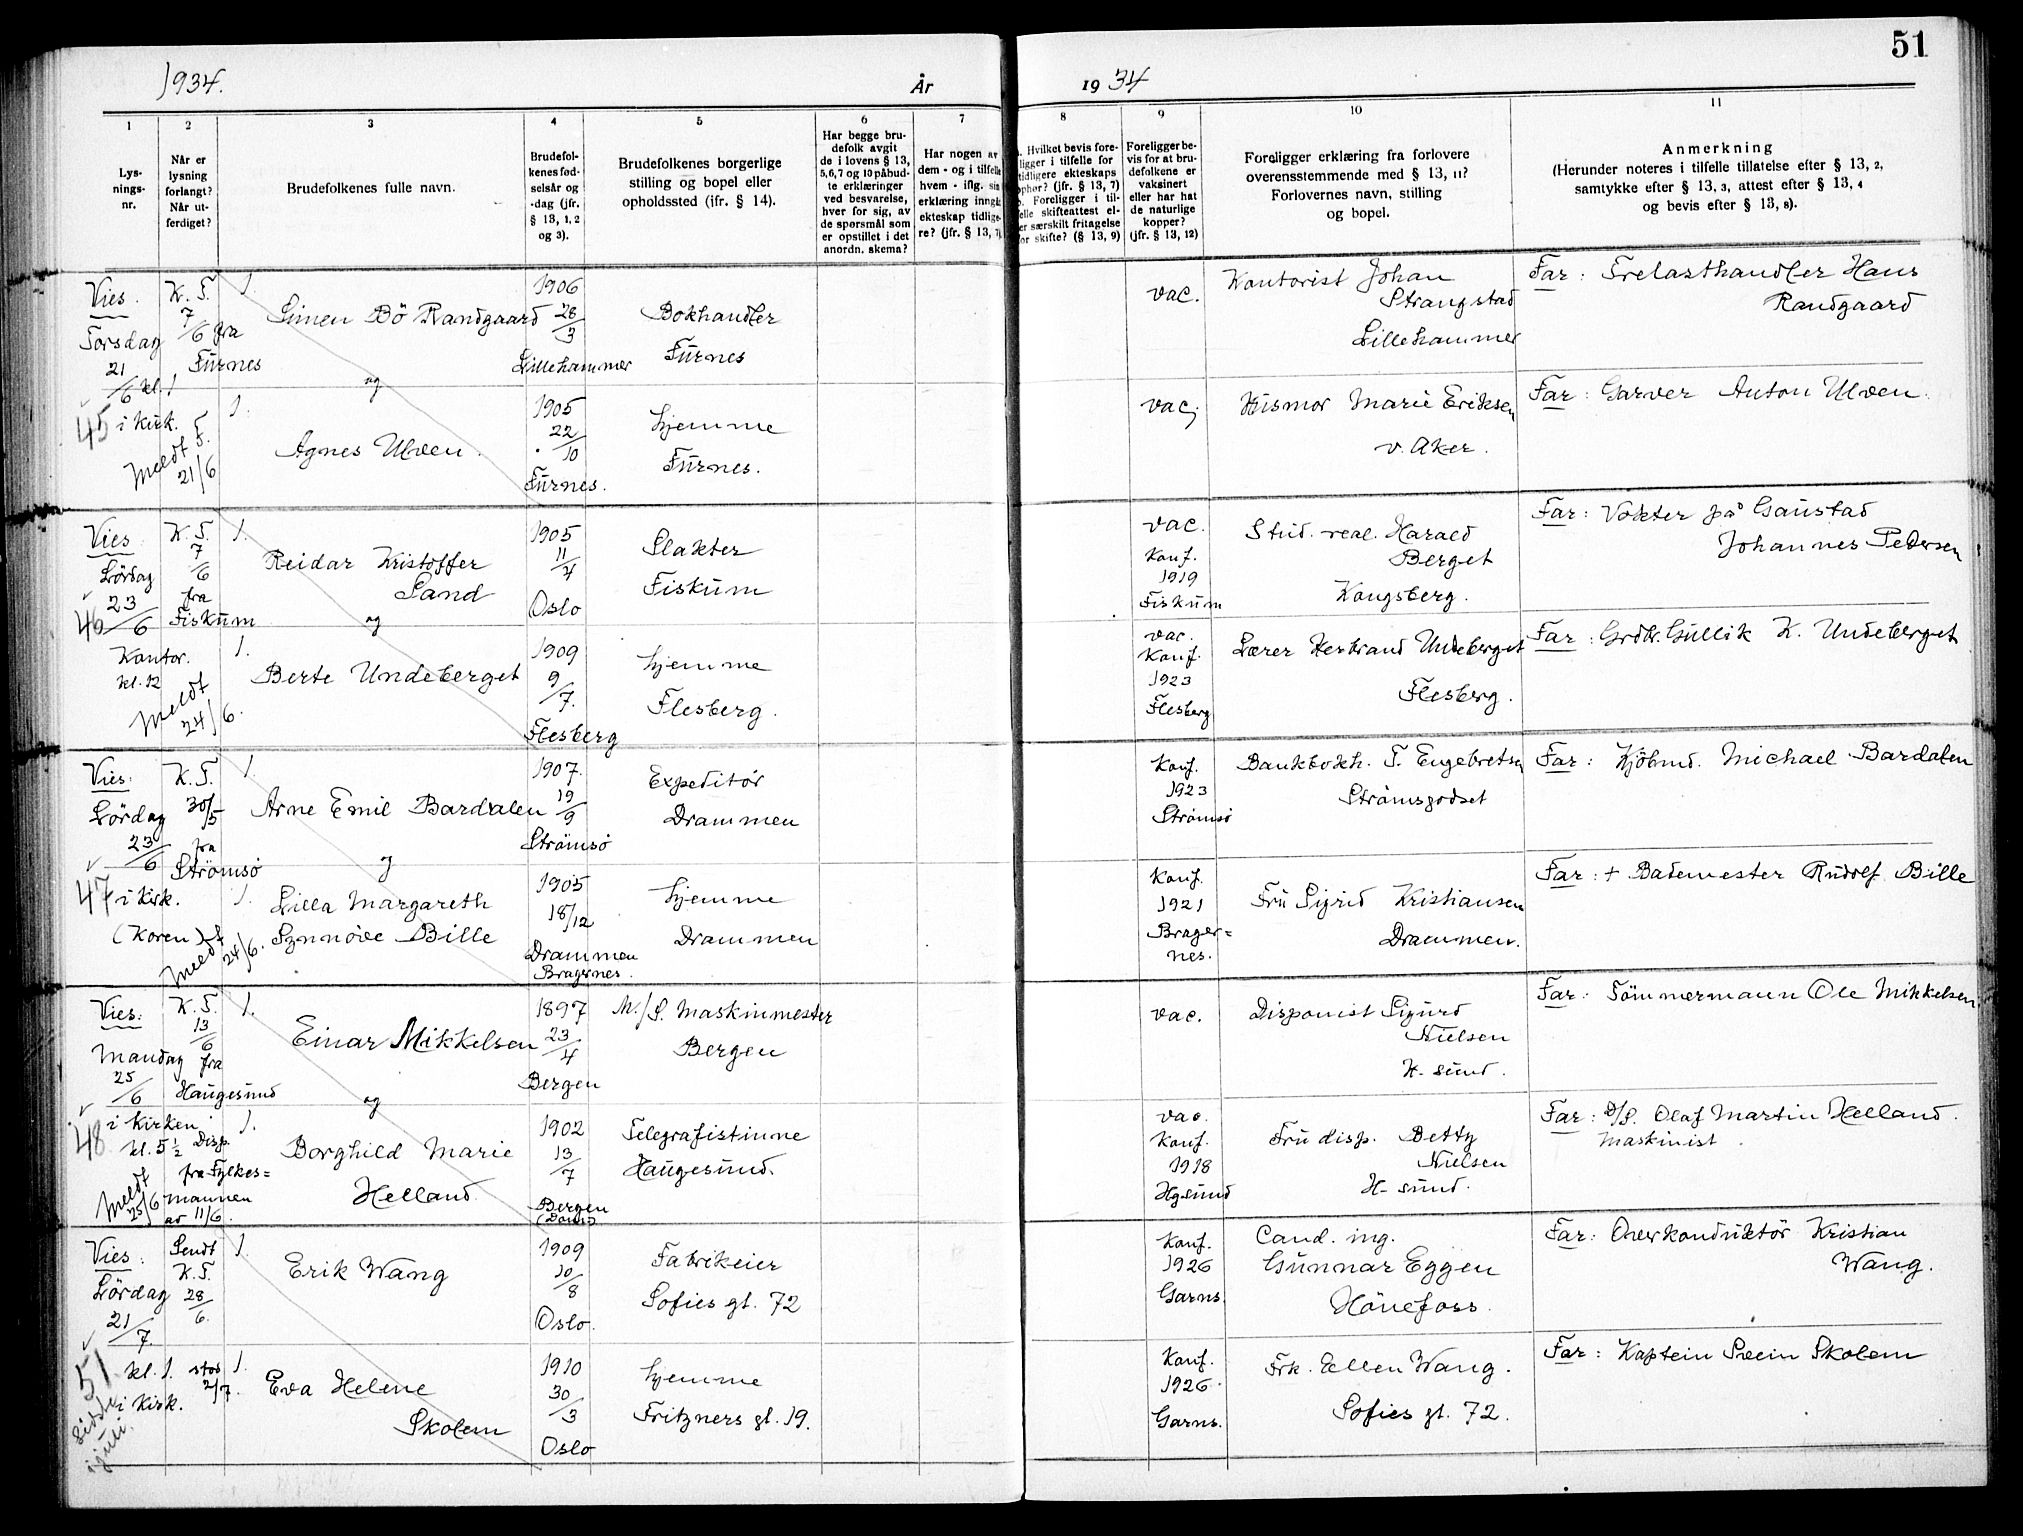 51
1934.
År
19 34
1
2
3
4
5
6
7
8
9
10
11
Lys-
nings-
nr.
Når er
lysning
forlangt?
Når ut-
ferdiget?
Brudefolkenes fulle navn.
Brudefol-
kenes fød-
selsår og
-dag (jfr.
§ 13, 1, 2
og 3).
Brudefolkenes borgerlige
stilling og bopel eller
opholdssted (ifr. § 14).
Har begge bru-
defolk avgit
de i lovens § 13,
5,6,7 og 10 påbud-
te erklæringer
ved besvarelse,
hver for sig, av
de spørsmål som
er opstillet i det
anordn. skema?
Har nogen av
dem - og i tilfelle
hvem - iflg. sin
erklæring inngå
ekteskap tidlige-
re? (jfr. § 13, 7)
. Hvilket bevis fore-
ligger i tilfelle for
tidligere ekteskaps
ophør? (jfr. § 13, 7)
. Foreligger i til-
felle skifteattest el-
er særskilt fritagelse
for skifte? (§ 13, 9)
Foreligger be-
vis for at bru-
defolkene er
vaksinert
eller har hat
de naturlige
kopper?
(jfr. § 13, 12)
Foreligger erklæring fra forlovere
overensstemmende med § 13, 11?
Forlovernes navn, stilling
og bopel.
Anmerkning
(Herunder noteres i tilfelle tillatelse efter § 13, 2,
samtykke efter § 13, 3, attest efter § 13, 4
og bevis efter § 13, 8).
Vies.
Torsdag
21/6 kl. 1
45 i kirk.
Meldt F.
21/6
K. T.
7/6 fra
Furnes
1.
Simen Bö Randgaard
og
1906
28/3
Lillehammer
Bokhandler
Furnes
vac.
Kontorist Johan
Strangstad
Lillehammer
Far: Trelasthandler Hans
Randgaard
1.
Agnes Ulven.
1905
22/10
Furnes.
hjemme
Furnes.
vac.
Husmor Marie Eriksen
v. Aker.
Far: Garver Anton Ulven.
Vies.
Lördag
23/6
46
Kontor.
kl. 12
Meldt
24/6.
K. T.
7/6
fra
Fiskum
1.
Reidar Kristoffer
Sand
og
1905
11/4
Oslo
Slakter
Fiskum
vac.
Konf.
1919
Fiskum
Stud. real. Harald
Berget
Kongsberg.
Far: Vokter på Gaustad
Johannes Pedersen
1.
Berte Undeberget
1909
9/7.
Flesberg
hjemme
Flesberg.
vac.
Konf.
1923
Flesberg
Lærer Herbrand Undeberget
Flesberg.
Far: Grdbr. Gullik K. Undeberget
Vies:
Lördag
23/6
47 i kirk.
(Koren)
Meldt
24/6.
K. T.
30/5
fra
Strömsö
1.
Arne Emil Bardalen
og
1907.
19/9
Strömsö
Expeditör
Drammen
Konf.
1923
Strömsö
Bankbokh. T. Engebretsen
Strömsgodset
Far: Kjöbmd. Michael Bardalen
1.
Lilla Margareth
Synnöve Bille
1905
18/12
Drammen
Bragernes.
hjemme
Drammen
Konf.
1921
Brager=
nes.
Fru Sigrid Kristiansen
Drammen.
Far: + Bademester Rudolf Bille
Vies:
Mandag
25/6
i kirken
48 kl. 5 1/2
Meldt
25/6
K. T.
13/6
fra
Haugesund
Disp.
fra Fylkes=
mannen
av 11/6.
1.
Einar Mikkelsen
og
1897
23/4
Bergen
M./S. Maskinmester
Bergen
vac.
Disponist Sigurd
Nielsen
H. sund.
Far: Tömmermann Ole Mikkelsen
1.
Borghild Marie
Helland.
1902
13/7
Bergen
Telegrafistinne
Haugesund.
vac.
Konf.
1918
Hgsund
Fru disp. Betty
Nielsen
H- sund.
Far: D/S. Olaf Martin Helland.
Maskinist.
Vies:
Lördag
21/7.
51 kl. 1.
i kirk.
Sidste
i juli.
Sendt
K. T.
28/6.
stod
2/7.
1.
Erik Wang
1909
10/8
Oslo.
Fabrikeier
Sofies gt. 72
Konf.
1926
Garns.
Cand. ing.
Gunnar Eggen
Hönefoss.
Far: Overkonduktör Kristian
Wang.
1.
Eva Helene
Skolem
1910
30/3
Oslo
hjemme
Fritzners gt. 19.
Konf.
1926.
Garns.
Frk. Ellen Wang.
Sofies gt. 72.
Far: Kaptein Svein Skolem